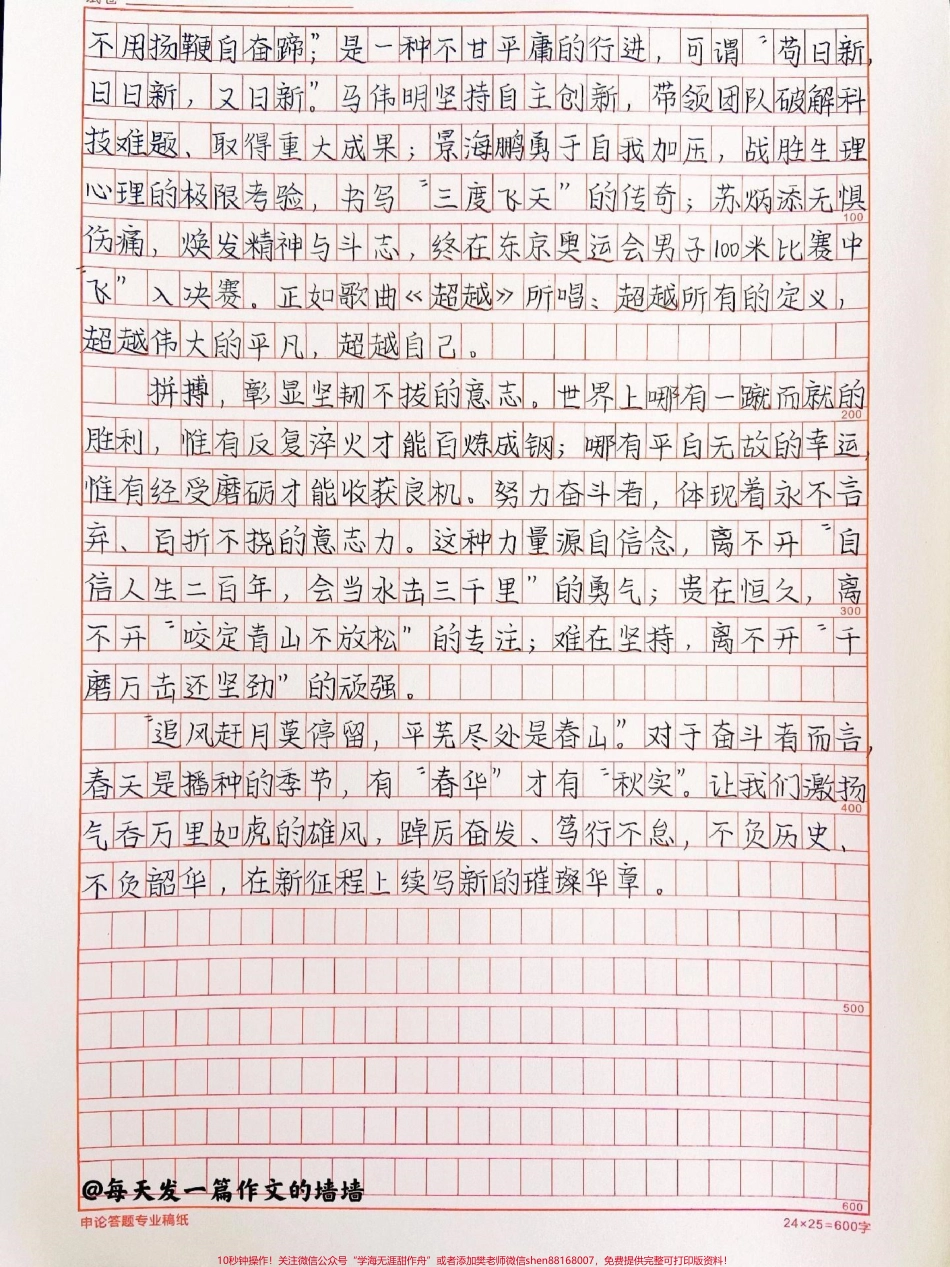 不用扬鞭自奋蹄”；是一种不甘平庸的行进，可谓“苟日新，
日日新，又日新”。马伟明坚持自主创新，带领团队破解科
技难题、取得重大成果；景海鹏勇于自我加压，战胜生理
心理的极限考验，书写“三度飞天”的传奇；苏炳添无惧
100
伤痛，焕发精神与斗志，终在东京奥运会男子100米比赛中
“飞”入决赛。正如歌曲《超越》所唱：超越所有的定义，
超越伟大的平凡，超越自己。
拼搏，彰显坚韧不拔的意志。世界上哪有一蹴而就的
200
胜利，惟有反复淬火才能百炼成钢；哪有平白无故的幸运，
惟有经受磨砺才能收获良机。努力奋斗者，体现着永不言
弃、百折不挠的意志力。这种力量源自信念，离不开“自
信人生二百年，会当水击三千里”的勇气；贵在恒久，离
300
不开“咬定青山不放松”的专注；难在坚持，离不开“千
磨万击还坚劲”的顽强。
“追风赶月莫停留，平芜尽处是春山”。对于奋斗者而言，
春天是播种的季节，有“春华”才有“秋实”。让我们激扬
400
气吞万里如虎的雄风，踔厉奋发、笃行不怠，不负历史、
不负韶华，在新征程上续写新的璀璨华章。
500
@每天发一篇作文的墙墙
600
申论答题专业稿纸
24×25=600字
10秒钟操作！关注微信公众号“学海无涯甜作舟”或者添加樊老师微信shen88168007，免费提供完整可打印版资料！